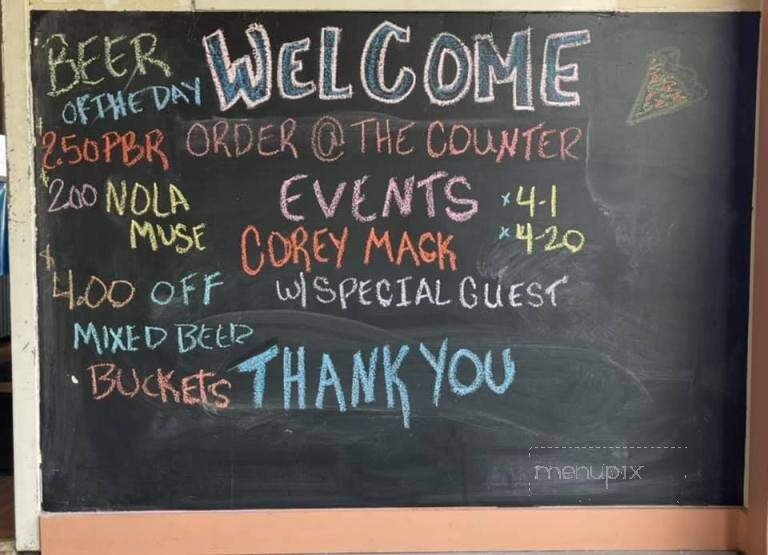 WELCOME
ORDER @ THE COUNTER
EVENTS x4-1
COREY MACK x4-20
W/SPECIAL GUEST
THANK YOU
BEER
OF THE DAY
$2.50 PBR
$2.00 NOLA
MUSE
$4.00 OFF
MIXED BEER
BUCKETS
menupix